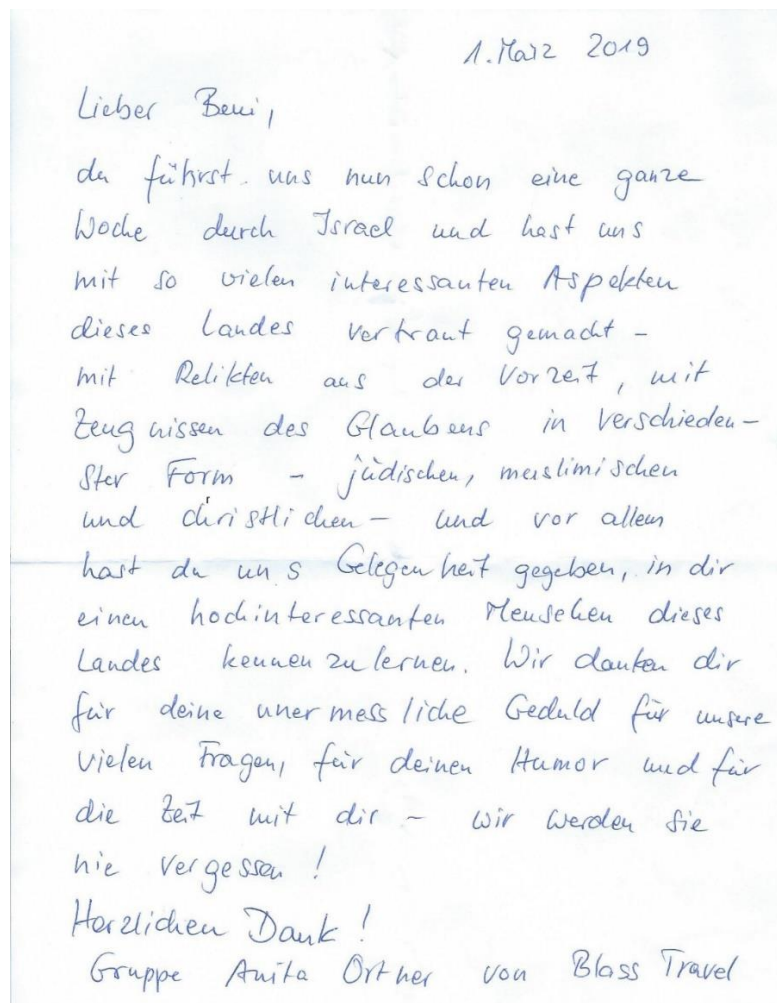 1. März 2019
Lieber Beni,
du führst uns nun schon eine ganze
Woche durch Israel und hast uns
mit so vielen interessanten Aspekten
dieses Landes vertraut gemacht -
mit Relikten aus der Vorzeit, mit
Zeugnissen des Glaubens in verschieden-
ster Form - jüdischen, muslimischen
und christlichen - und vor allem
hast du uns Gelegenheit gegeben, in dir
einen hochinteressanten Menschen dieses
Landes kennenzulernen. Wir danken dir
für deine unermessliche Geduld für unsere
vielen Fragen, für deinen Humor und für
die Zeit mit dir - wir werden sie
nie vergessen!
Herzlichen Dank!
Gruppe Anita Ortner von Blass Travel